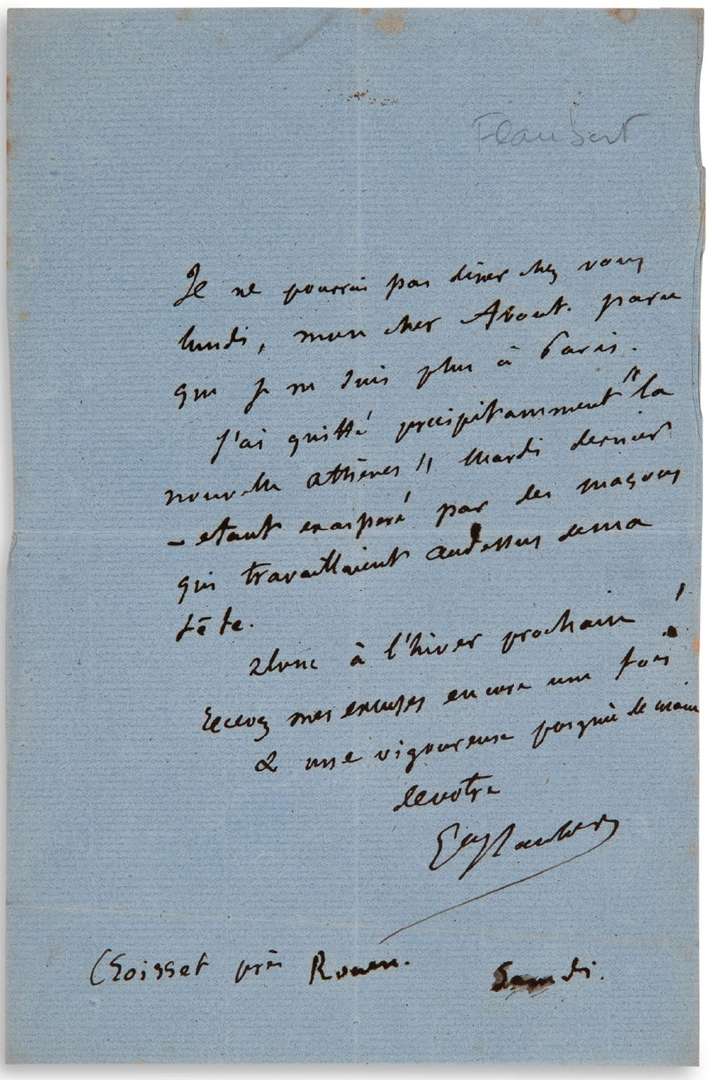 Flaubert
Je ne pourrai pas diner chez vous
lundi, mon cher About. parce
que je ne suis plus à Paris.
J'ai quitté precipitamment "la
nouvelle athènes" Mardi dernier
– etant exaspéré par des maçons
qui travaillaient audessus de ma
tête.
Donc à l'hiver prochain !
Recevez mes excuses encore une fois
& une vigoureuse poignée de main
de votre
G Flaubert
Croisset près Rouen. Samedi.